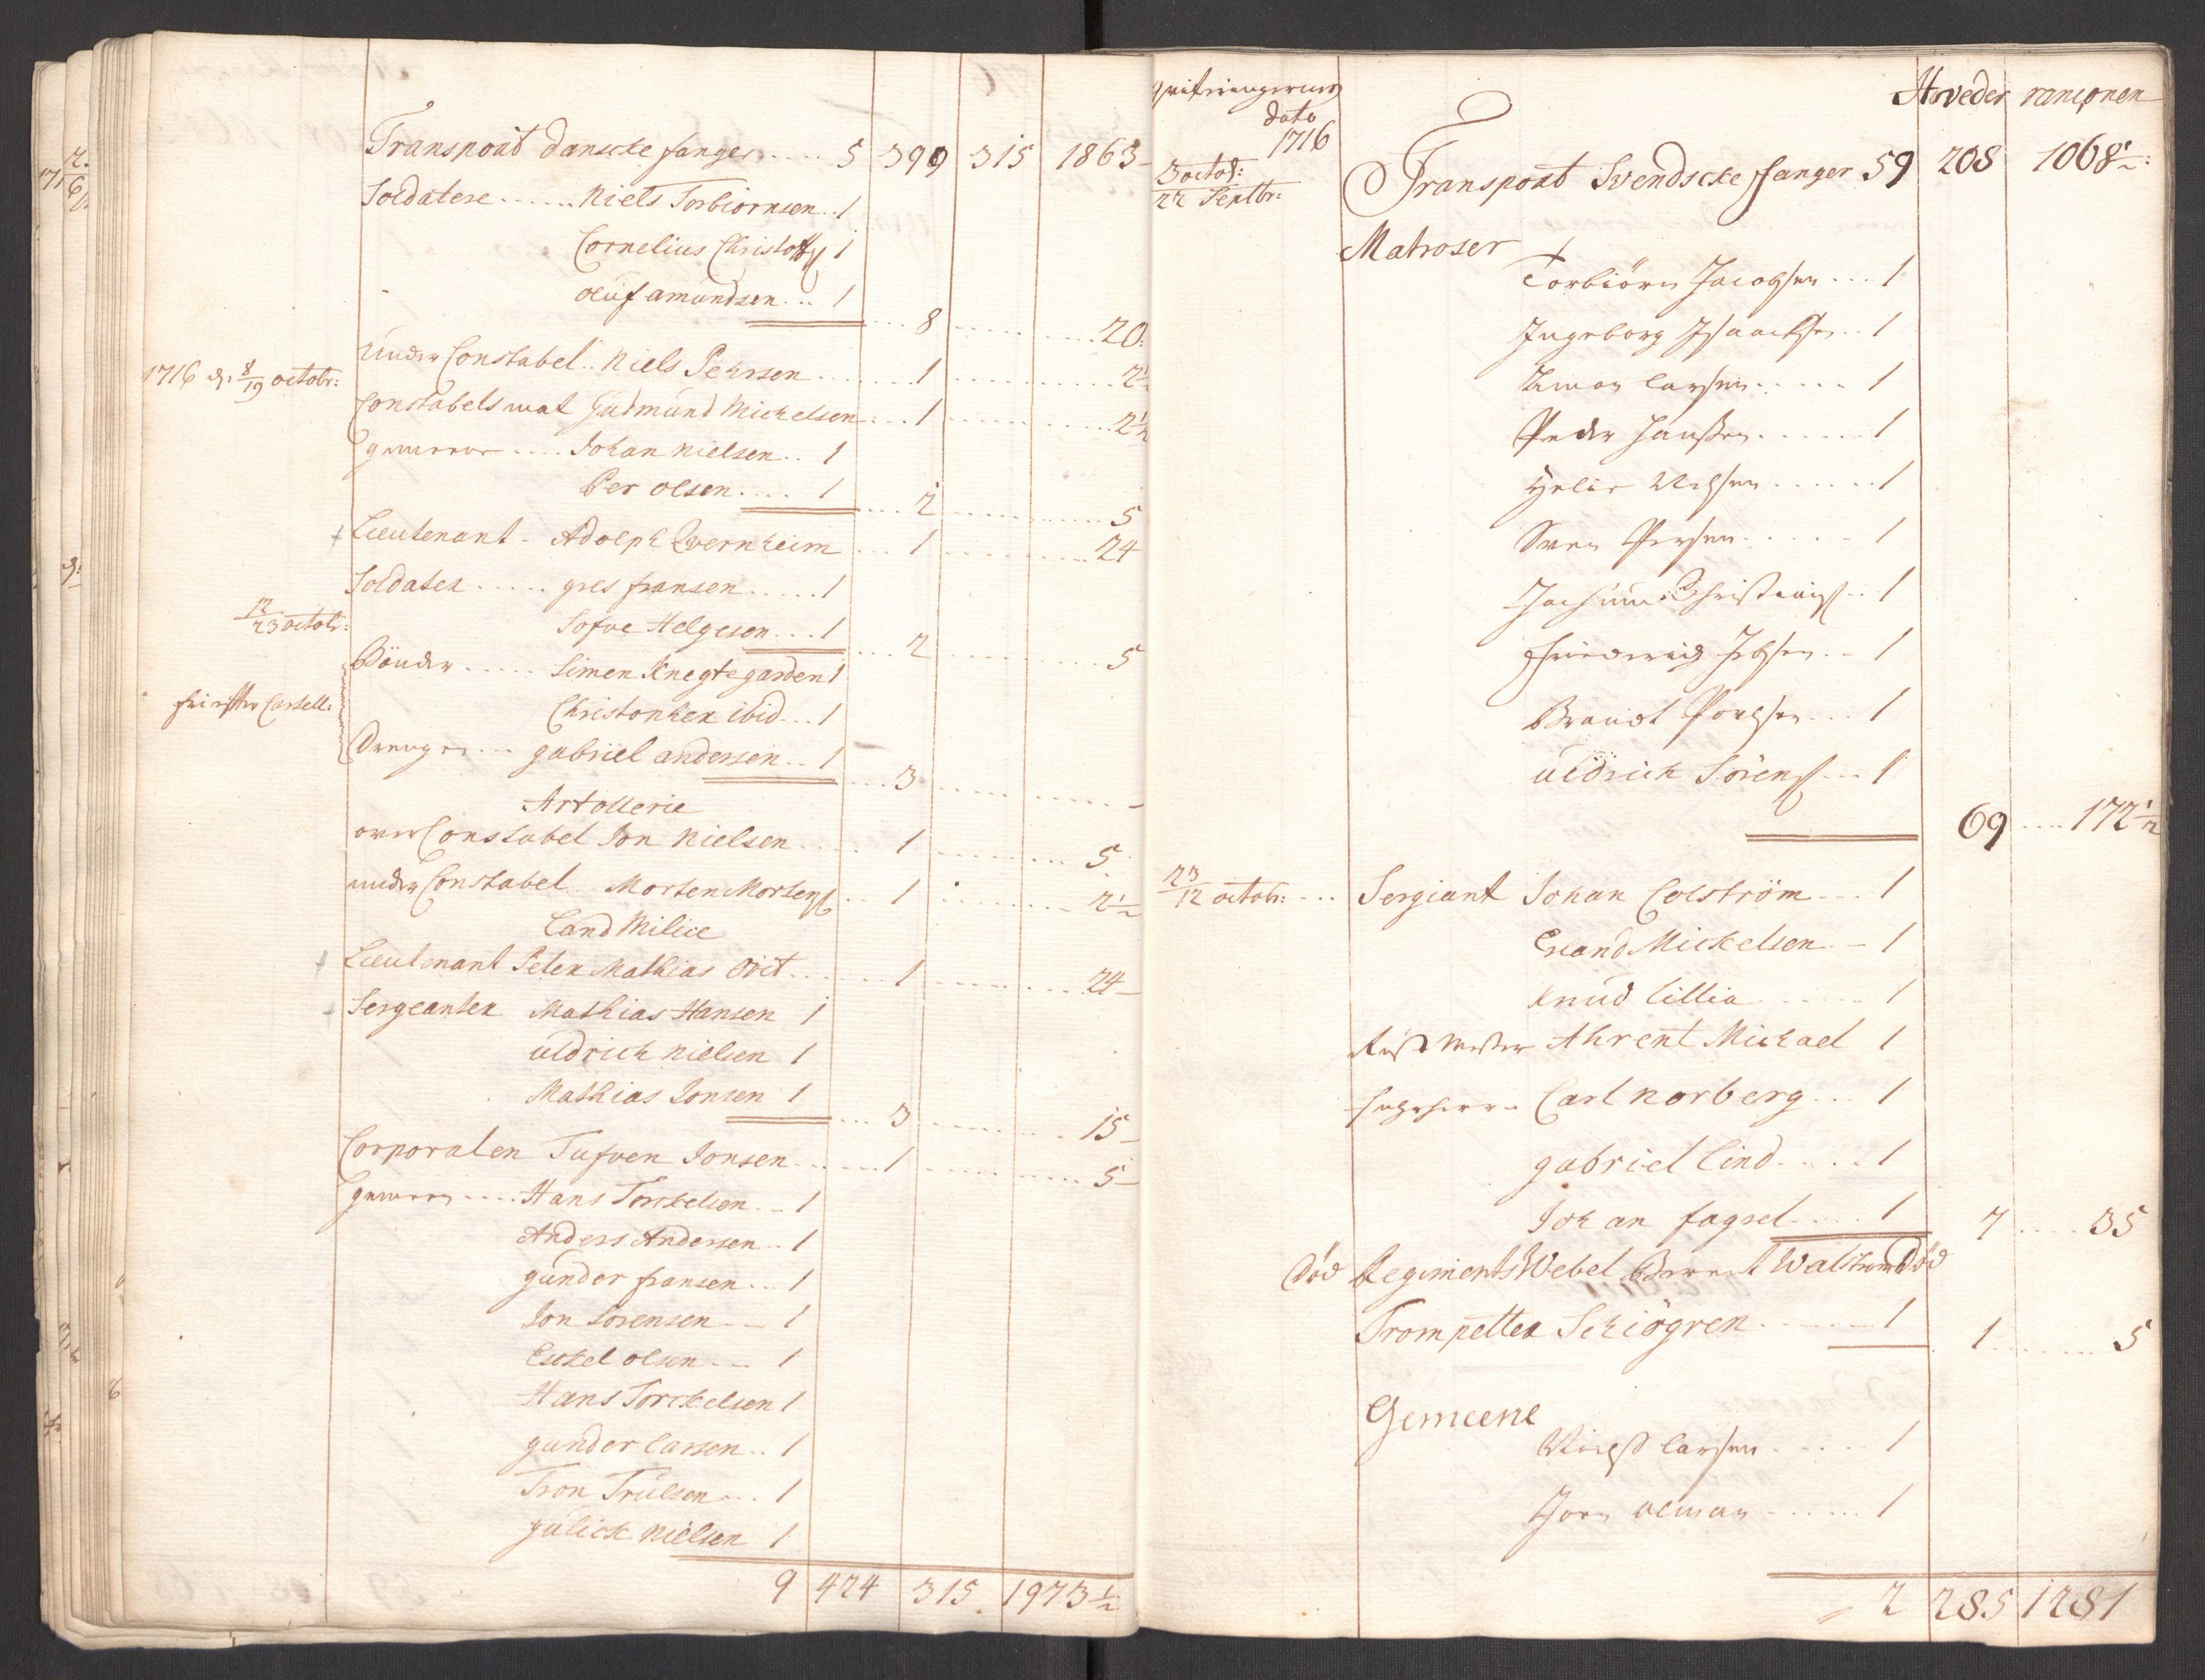 Transport danscke fanger ..... 5 | 399 | 315 | 1863 -
Soldatere ...... Niels Torbiornsen .. 1
Cornelius Christoff 1
oluf amundsen ... 1
... 8 ... 20:
1716 d: 8/19 octobr: Under Constabel .. Niels Pehrsen ... 1 ... 2½
Constabels mat Gudmund Michelsen ... 1 ... 2½
gemeene .... Johan Nielsen .. 1
Per olsen .... 1
... 2 ... 5
Lieutenant - Adolph Qvernheim ... 1 ... 24
Soldater ..... gres fransen ..... 1
12/23 octobr: Sofve Helgesen ... 1
... 2 ... 5
Bönder ..... Simen Knegtegarden 1
Cartell: Christopher ibid ... 1
Drenger ... gabriel andersen .. 1
... 3 ... -
Artollerie
over Constabel Jon Nielsen .... 1 ... 5
under Constabel .. Morten Mortens .. 1 ... 2½
Land Milice
Lieutenant Peter Mathias Ovit ... 1 ... 24 -
Sergeanter Mathias Hansen 1
Uldrich Nielsen 1
Mathias Jonsen 1
... 3 ... 15 -
Corporalen Tufven Jonsen ... 1 ... 5 -
gemeen .... Hans Torckelsen .. 1
Anders Andersen .. 1
gunder fransen ... 1
Jon Sörensen ... 1
Eschel olsen ... 1
Hans Torckelsen 1
gunder Larsen .. 1
Tron Trulsen ... 1
gulick Nielsen 1
9 | 424 | 315 | 1973½
dato
1716
Hoveder rantzonen
3 octob:
22 Septbr:
Transport Svendscke ffanger 59 | 208 | 1068½:
Matroser
Torbiörn Jacobsen ... 1
Ingeborg Isaachsen .. 1
Simon Larsen ..... 1
Peder Hanssen ...... 1
Helie Nielsen ...... 1
Sven Persen ..... 1
Jochum Christens .. 1
ffriderich Ibsen .. 1
Brandt Poulsen ... 1
Uldrich Sörens ... 1
69 .... 172½
23/12 octobr: ... Sergiant Johan Colström ... 1
Erland Mickelsen - 1
Knud Lillia ...... 1
Rust Mester Ahrent Michael 1
Carl Norberg ... 1
gabriel Lind .... 1
Johan fagrel .... 1
7 .... 35
Död Regiments Webel Berent Walstrom död
Trompetter Schiögren ...... 1
1 ...... 5
Gemeene
Larsen ..... 1
Jörn olman ...... 1
2 | 285 | 1281